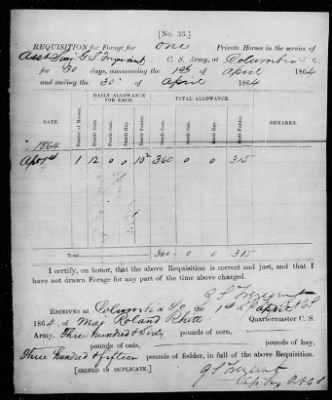 [No. 33.]
REQUISITION for Forage for one Private Horses in the service of
Asst Sur G S Trezvant C. S. Army, at Columbia S C
for 30 days, commencing the 1st of April 1864
and ending the 30 of April 1864
DAILY ALLOWANCE FOR EACH. TOTAL ALLOWANCE.
DATE. Number of Horses. Pounds Corn. Pounds Oats. Pounds Hay. Pounds Fodder. Pounds Corn. Pounds Oats. Pounds Hay. Pounds Fodder. REMARKS.
1864
Apr 1st 1 12 0 0 10½ 360 0 0 315
Total 360 0 315
I certify, on honor, that the above Requisition is correct and just, and that I
have not drawn Forage for any part of the time above charged.
G S Trezvant
RECEIVED at Columbia S C the 1st of April
1864, of Maj Roland Rhett Quartermaster C. S.
Army, Three hundred & Sixty pounds of corn,
pounds of oats, pounds of hay,
Three hundred & fifteen pounds of fodder, in full of the above Requisition.
[SIGNED IN DUPLICATE.] G S Trezvant